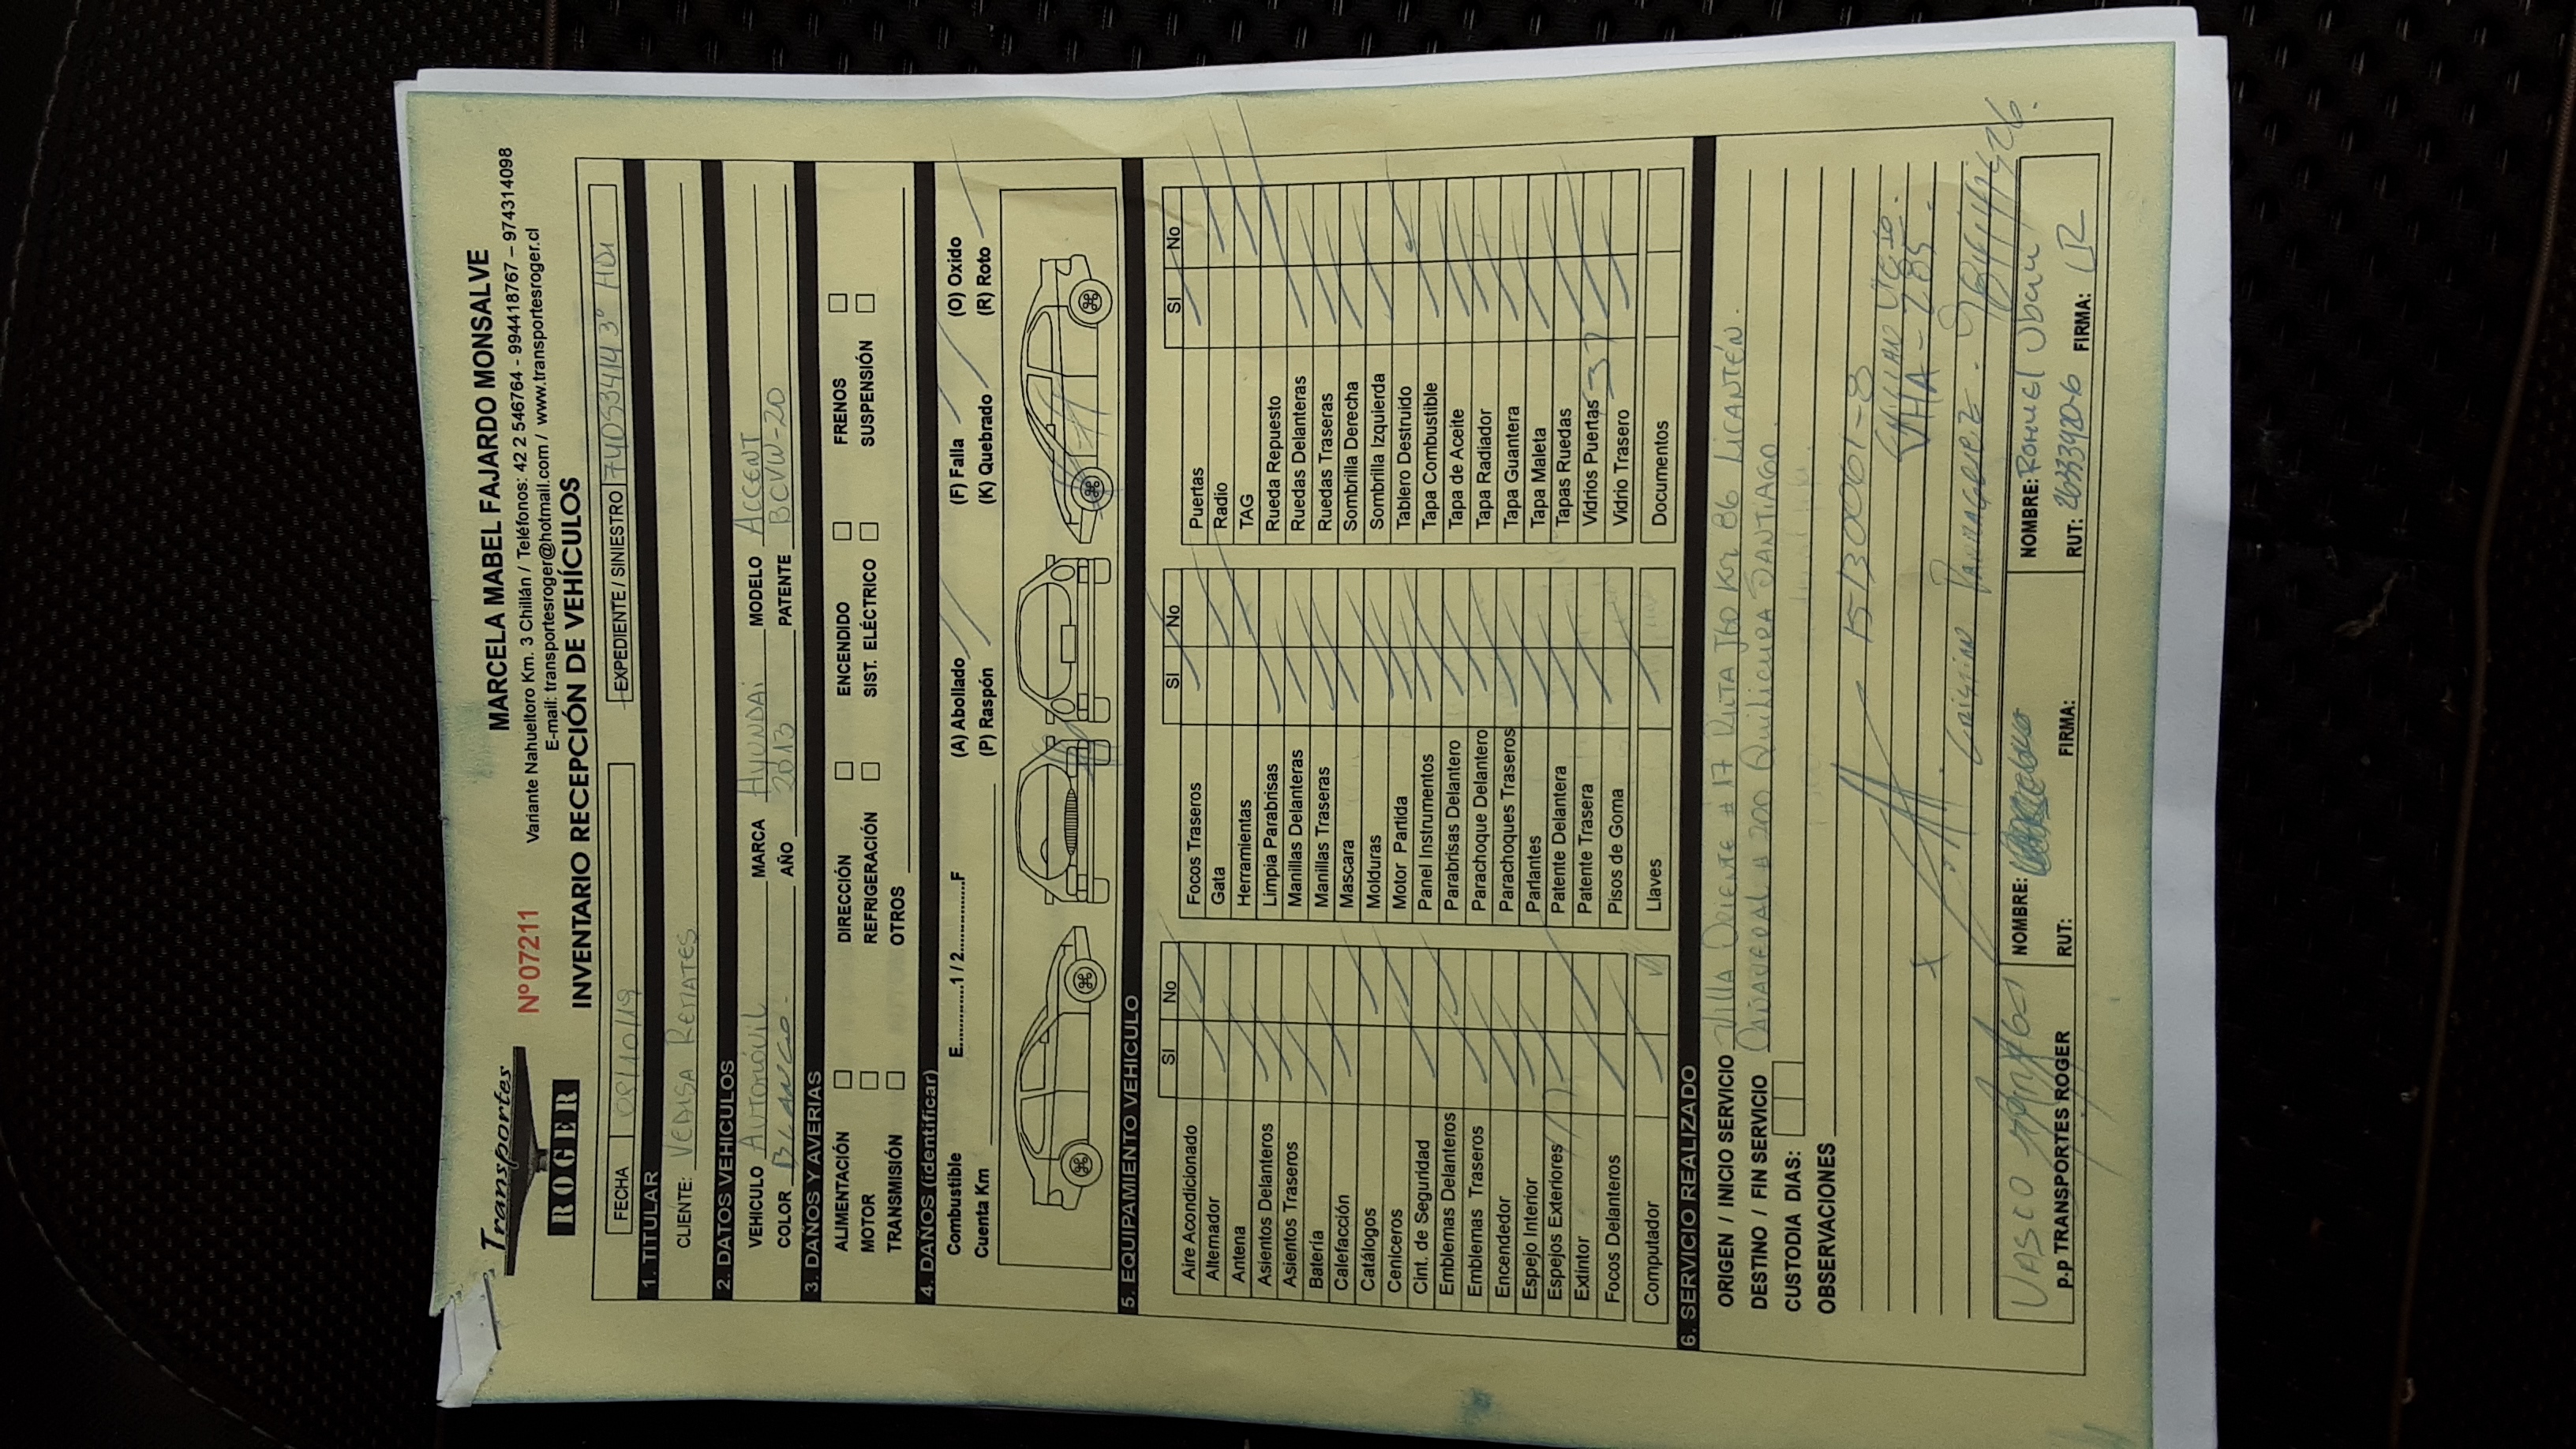 Transportes
ROGER
Nº 07211
MARCELA MABEL FAJARDO MONSALVE
Variante Nahueltoro Km. 3 Chillán / Teléfonos: 42 2 546764 - 994418767 – 974314098
E-mail: transportesroger@hotmail.com / www.transportesroger.cl
INVENTARIO RECEPCIÓN DE VEHÍCULOS
FECHA 08/10/19 EXPEDIENTE / SINIESTRO HDI
1. TITULAR
CLIENTE: VEDISA REMATES
2. DATOS VEHICULOS
VEHICULO AUTOMÓVIL MARCA HYUNDAI MODELO ACCENT
COLOR BLANCO. AÑO 2013 PATENTE BCVW-20
3. DAÑOS Y AVERIAS
ALIMENTACIÓN DIRECCIÓN ENCENDIDO FRENOS
MOTOR REFRIGERACIÓN SIST. ELÉCTRICO SUSPENSIÓN
TRANSMISIÓN OTROS
4. DAÑOS (identificar)
Combustible E............1 / 2..............F (A) Abollado (F) Falla (O) Oxido
Cuenta Km (P) Raspón (K) Quebrado (R) Roto
5. EQUIPAMIENTO VEHICULO
SI No SI No SI No
Aire Acondicionado Focos Traseros Puertas
Alternador Gata Radio
Antena Herramientas TAG
Asientos Delanteros Limpia Parabrisas Rueda Repuesto
Asientos Traseros Manillas Delanteras Ruedas Delanteras
Batería Manillas Traseras Ruedas Traseras
Calefacción Mascara Sombrilla Derecha
Catálogos Molduras Sombrilla Izquierda
Ceniceros Motor Partida Tablero Destruido
Cint. de Seguridad Panel Instrumentos Tapa Combustible
Emblemas Delanteros Parabrisas Delantero Tapa de Aceite
Emblemas Traseros Parachoque Delantero Tapa Radiador
Encendedor Parachoques Traseros Tapa Guantera
Espejo Interior Parlantes Tapa Maleta
Espejos Exteriores Patente Delantera Tapas Ruedas
Extintor Patente Trasera Vidrios Puertas 3
Focos Delanteros Pisos de Goma Vidrio Trasero
Computador Llaves Documentos
6. SERVICIO REALIZADO
ORIGEN / INICIO SERVICIO VILLA ORIENTE # 17 RUTA J60 Km 86 LICANTÉN.
DESTINO / FIN SERVICIO CAÑAVERAL # 200 QUILICURA SANTIAGO.
CUSTODIA DIAS:
OBSERVACIONES
15130061-8
X
VASCO
p.p TRANSPORTES ROGER
NOMBRE: NOMBRE: ROMMEL
RUT: FIRMA: RUT: 26333920-6 FIRMA: